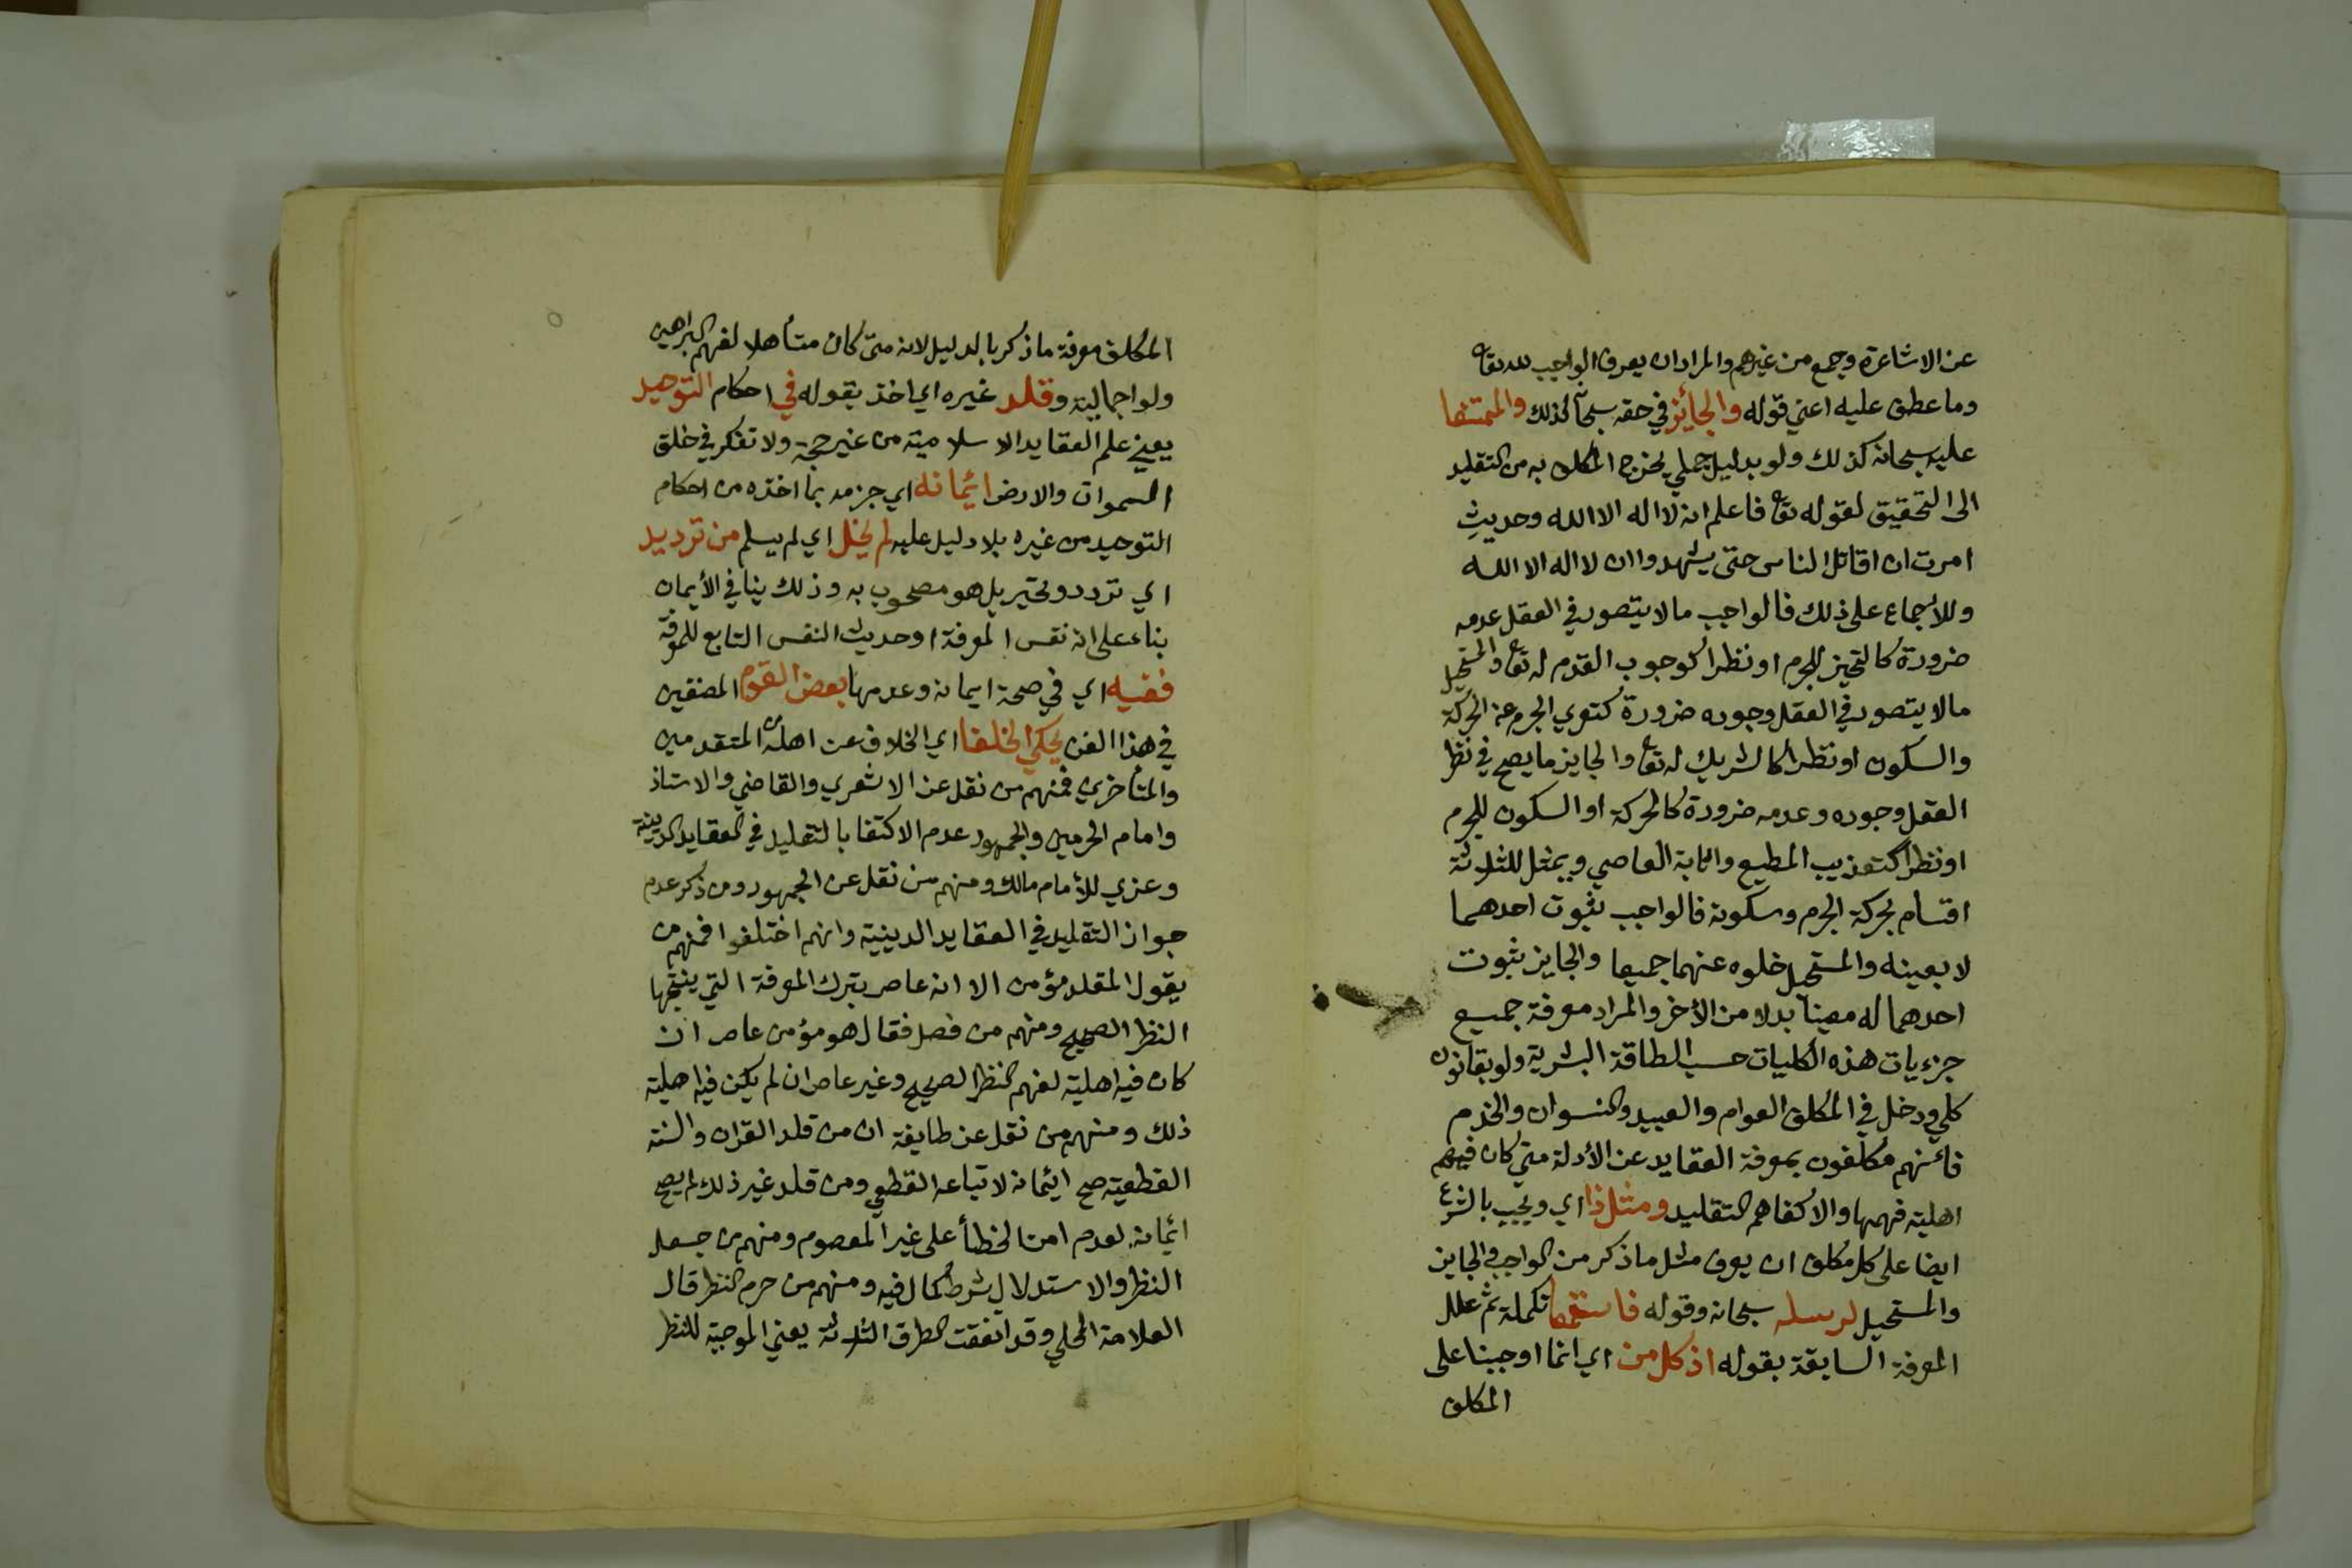 عن الاشاعرة وجمع من غيرهم والمراد ان يعرف الواجب لله تعا
وما عطف عليه اعني قوله والجائز في حقه سبحانه كذلك والممتنعا
عليه سبحانه كذلك ولو بدليل جملي يخرج المكلف به من التقليد
الى التحقيق لقوله تعا فاعلم انه لا اله الا الله وحديث
امرت ان اقاتل الناس حتى يشهدوا ان لا اله الا الله
وللاجماع على ذلك فالواجب ما لا يتصور في العقل عدمه
ضرورة كالتحيز للجرم او نظرا كوجوب القدم له تعا والمستحيل
مالا يتصور في العقل وجوده ضرورة كتعري الجرم عن الحركة
والسكون او نظرا كالشريك له تعا والجايز ما يصح في نظر
العقل وجوده وعدمه ضرورة كالحركة او السكون للجرم
او نظرا كتعذيب المطيع واثابة العاصي ويمثل للثلاثة
اقسام بحركة الجرم وسكونه فالواجب ثبوت احدهما
لا بعينه والمستحيل خلوه عنهما جميعا والجايز ثبوت
احدهما له معينا بدلا من الأخر والمراد معرفة جميع
جزءيات هذه الكليات حسب الطاقة البشرية ولو بقانون
كلي ودخل في المكلف العوام والعبيد والنسوان والخدم
فانهم مكلفون بمعرفة العقايد عن الأدلة متى كان فيهم
اهلية فهمها والا كفاهم التقليد ومثل ذا اي ويجب بالشرع
ايضا على كل مكلف ان يعرف مثل ما ذكر من الواجب والجايز
والمستحيل لرسله سبحانه وقوله فاستمعا تكملة ثم علل
المعرفة السابقة بقوله اذ كل من اي انما اوجبنا على
المكلف
المكلف معرفة ما ذكر بالدليل لانه متى كان متأهلا لفهم البراهين
ولو اجمالية وقلد غيره اي اخذ بقوله في احكام التوحيد
يعني علم العقايد الاسلامية من غير حجة ولا تفكر في خلق
السموات والارض ائيمانه اي جزمه بما اخذه من احكام
التوحيد من غيره بلا دليل عليه لم يخل اي لم يسلم من ترديد
اي تردد وتحير بل هو مصحوب به وذلك ينافي الأيمان
بناء على انه نفس المعرفة او حديث النفس التابع للمعرفة
ففيه اي في صحة ايمانه وعدمها بعض القوم المصنفين
في هذا الفن يحكي الخلفا اي الخلاف عن اهله المتقدمين
والمتأخرين فمنهم من نقل عن الاشعري والقاضي والاستاذ
وامام الحرمين والجمهور عدم الاكتفا بالتقليد في العقايد الدينية
وعزي للأمام مالك ومنهم من نقل عن الجمهور ومن ذكر عدم
جواز التقليد في العقايد الدينية وانهم اختلفوا فمنهم من
يقول المقلد مؤمن الا انه عاص بترك المعرفة التي ينتجها
النظر الصحيح ومنهم من فصل فقال هو مؤمن عاص ان
كان فيه اهلية لفهم النظر الصحيح وغير عاص ان لم يكن فيه اهلية
ذلك ومنهم من نقل عن طايفة ان من قلد القران والسنة
القطعية صح ائيمانه لاتباعه القطعي ومن قلد غير ذلك لم يصح
ائيمانه لعدم امن الخطأ على غير المعصوم ومنهم من جعل
النظر والاستدلال شرط كمال فيه ومنهم من حرم النظر قال
العلامة المحلي وقد اتفقت الطرق الثلاثة يعني الموجبة للنظر